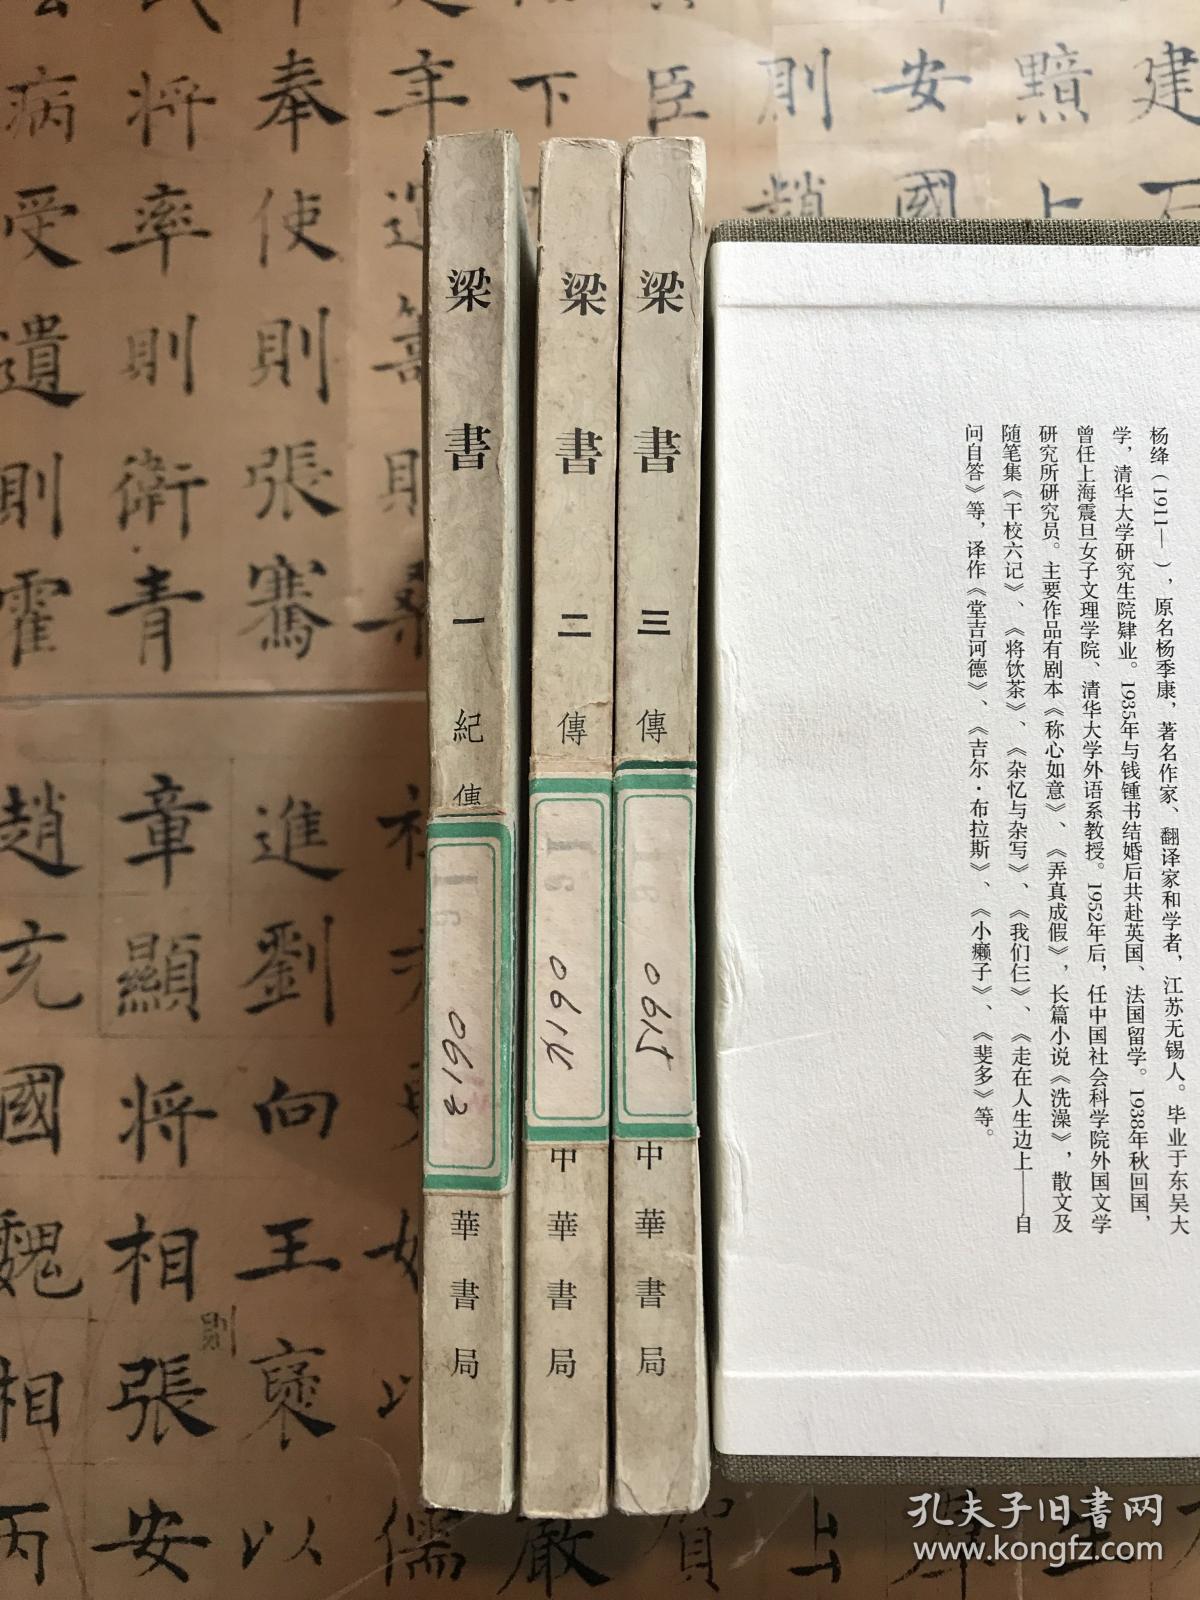 梁書 一 紀 傳
0613
華書局
梁書 二 傳
16
0614
中華書局
梁書 三 傳
16
0615
中華書局
杨绛（1911— ），原名杨季康，著名作家、翻译家和学者，江苏无锡人。毕业于东吴大
学，清华大学研究生院肄业。1935年与钱锺书结婚后共赴英国、法国留学。1938年秋回国，
曾任上海震旦女子文理学院、清华大学外语系教授。1952年后，任中国社会科学院外国文学
研究所研究员。主要作品有剧本《称心如意》、《弄真成假》，长篇小说《洗澡》，散文及
随笔集《干校六记》、《将饮茶》、《杂忆与杂写》、《我们仨》、《走在人生边上——自
问自答》等，译作《堂吉诃德》、《吉尔·布拉斯》、《小癞子》、《斐多》等。
建
黥上
安國
則趙
臣
下
年
奉使則張騫
進劉向王褒
將率則衛青
章顯將相則張安
病受遺則霍
趙充國魏相丙
以
儒
嚴
賀
上
孔夫子旧书网
www.kongfz.com